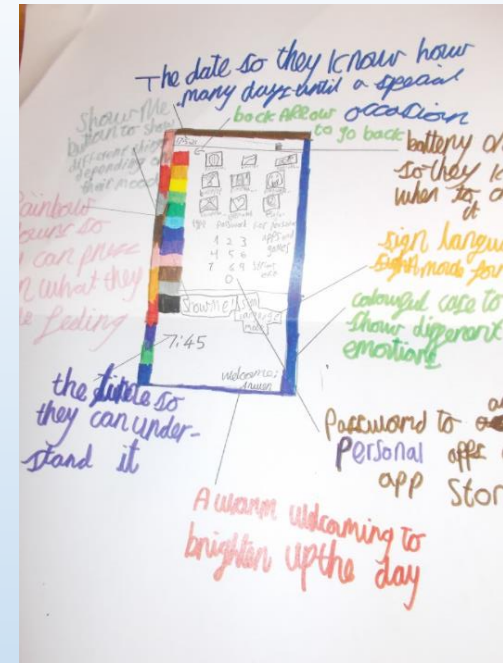 The date so they know how
many days until a special
occasion
back ARRow
to go back
show Me
button to show
different
depending on
their mood
battery on
so they k
when to
it
Rainbow
colours so
can press
on what they
feeling
sign langu
mode fo
colourful case to
show different
emotions
1 2 3
4 5 6
7 8 9
0
ShowMe!
sign
7:45
welcome:
the time so
they can under-
stand it
Password to
Personal apps
app Stor
A warm welcoming to
brighten up the day